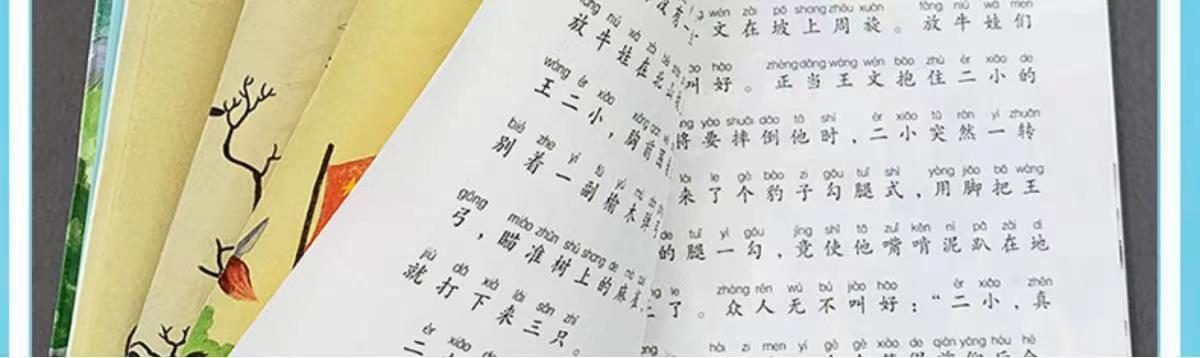 放牛娃在北山
wáng èr xiǎo
王二小，胸前
bié zhe yí
别着一副榆木弹
gōng miáo zhǔn shù shang de
弓，瞄准树上的麻雀，
jiù dǎ xià lái sān zhī
就打下来三只。
èr xiǎo
二小
wén zài pō shang zhōu xuán fàng niú wá men
文在坡上周旋。放牛娃们
jiào hǎo zhèng dāng wáng wén bào zhù èr xiǎo de
叫好。正当王文抱住二小的
yào shuāi dǎo tā shí èr xiǎo tū rán yì zhuǎn
将要摔倒他时，二小突然一转
lái le gè bào zi gōu tuǐ shì yòng jiǎo bǎ wáng
来了个豹子勾腿式，用脚把王
de tuǐ yì gōu jìng shǐ tā zuǐ kěn ní pā zài dì
的腿一勾，竟使他嘴啃泥趴在地
le zhòng rén wú bù jiào hǎo èr xiǎo zhēn
了。众人无不叫好：“二小，真
hái zi men yí gè gè xiào de qián yǎng hòu hé